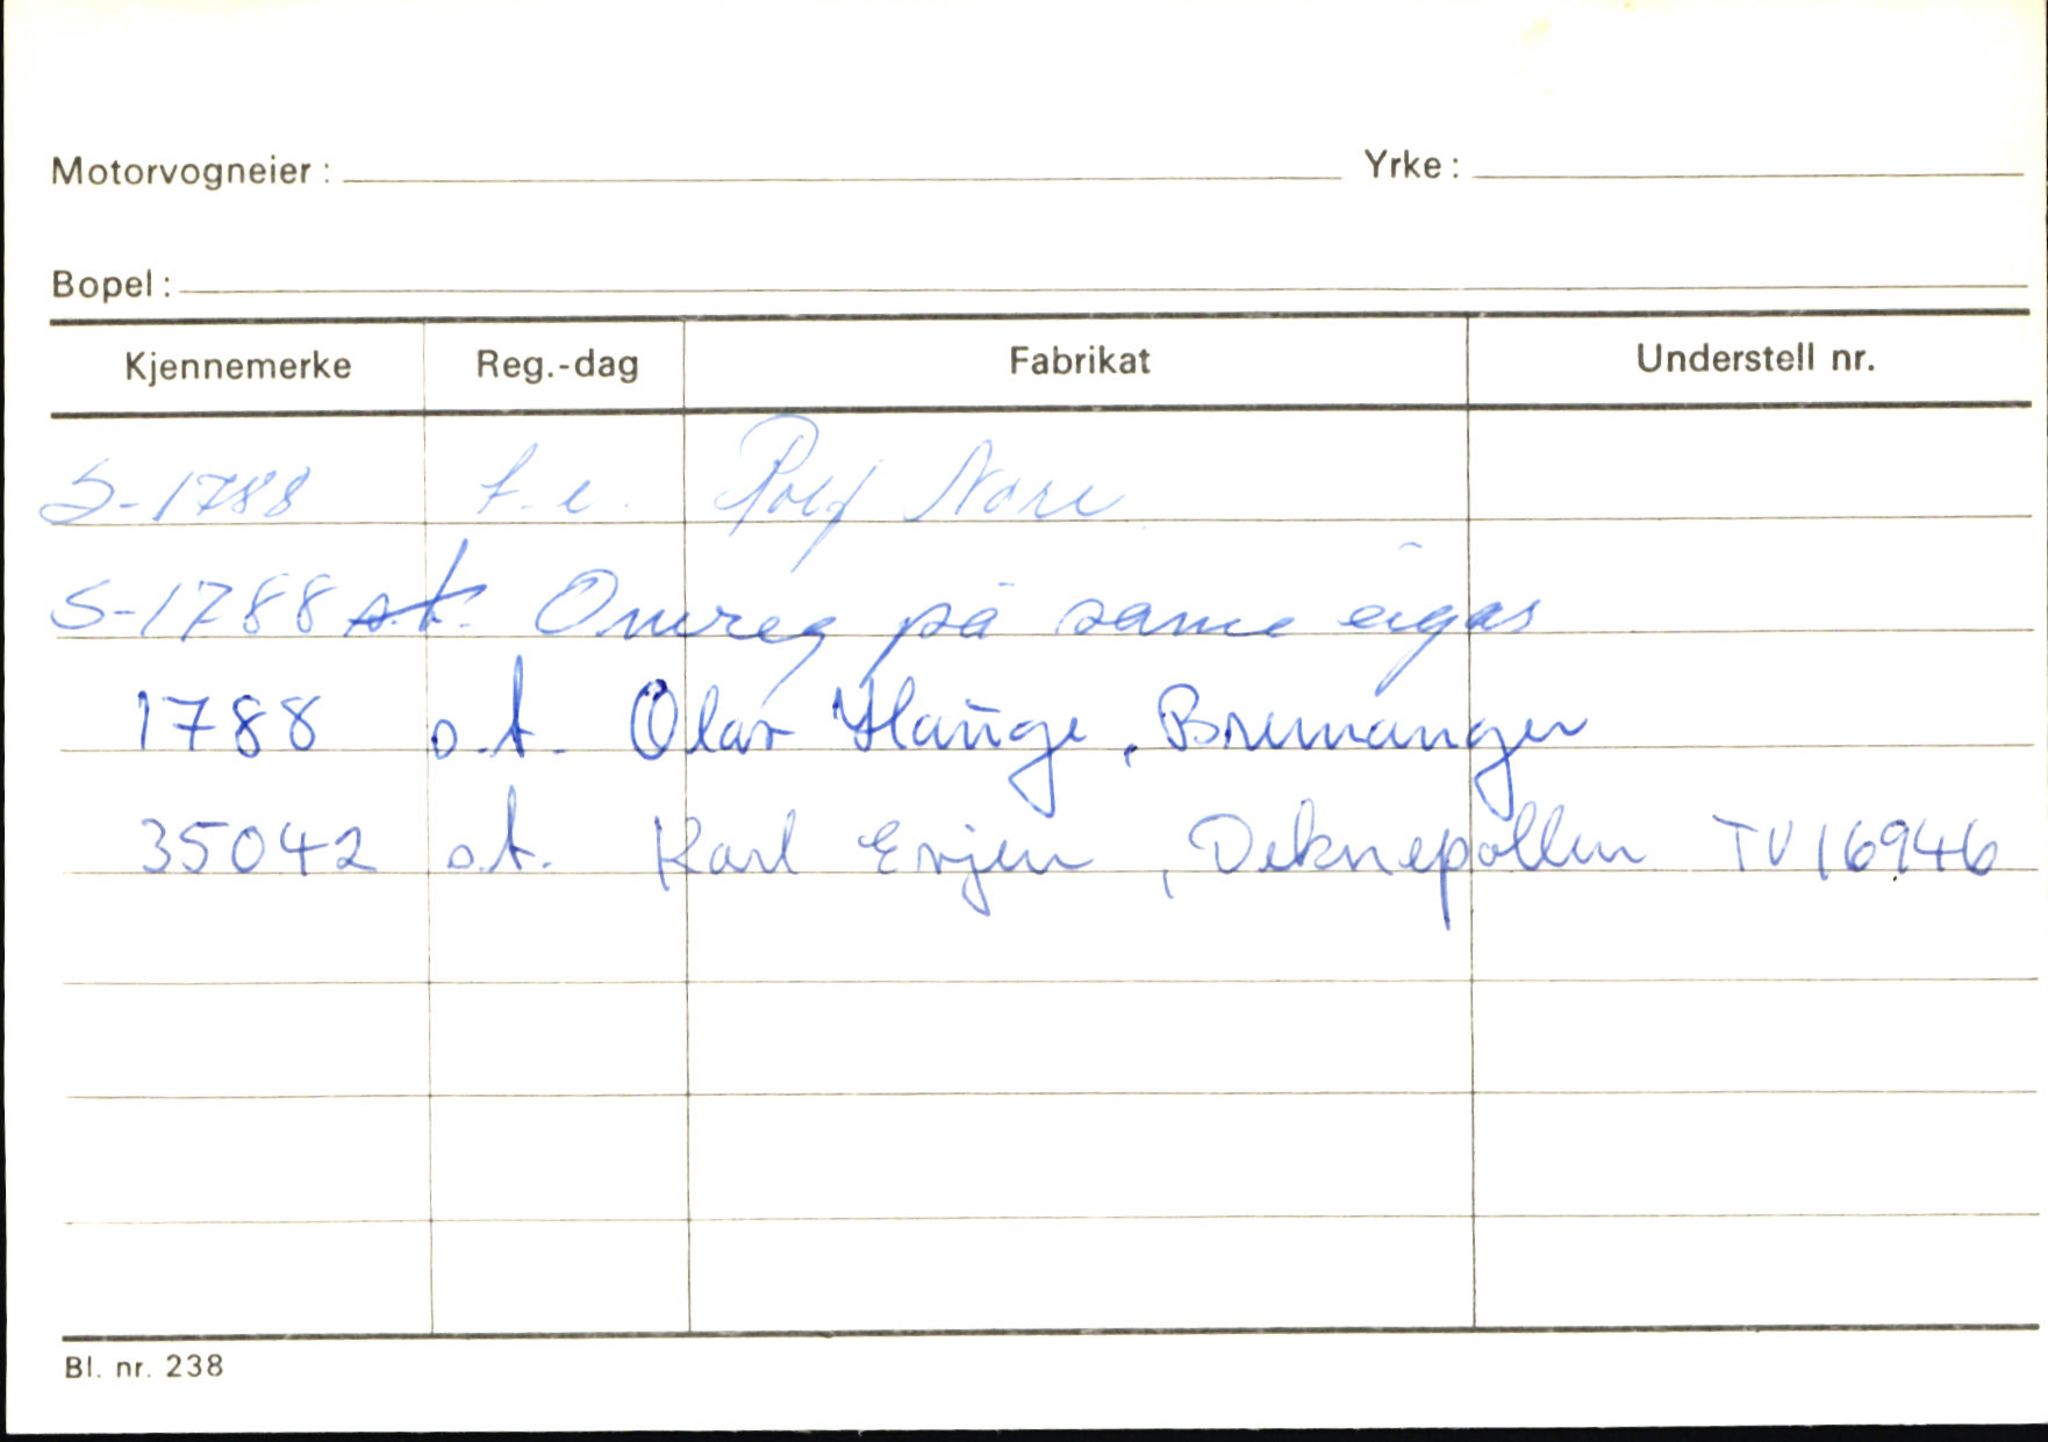 Motorvogneier: Yrke:
Bopel:
Kjennemerke Reg.-dag Fabrikat Understell nr.
S-1788 f.e. Rolf Nore
S-1788 Omreg på same eigar
1788 o.t. Olav Hauge, Bremanger
35042 o.t. Karl Evjen, Deknepollen TV16946
Bl. nr. 238